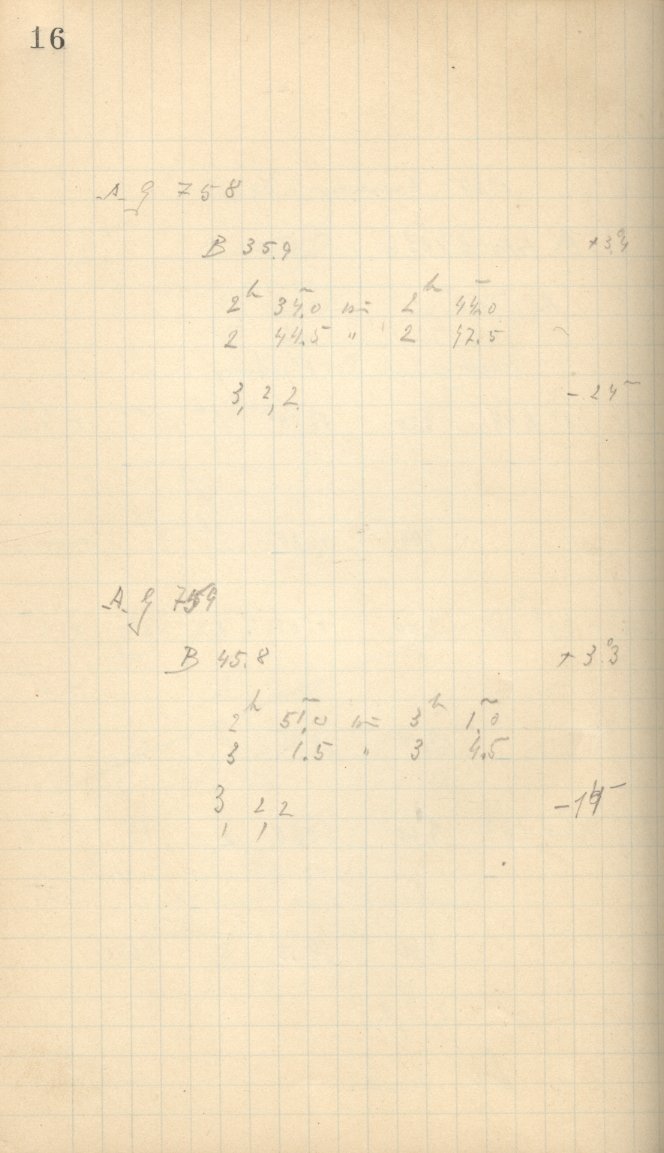 16
A G 758
B 35.9 +3°.4
2h 34m.0 2h 44m.0
2 44.5 " 2 47.5
3, 2, 2 -24m
A G 759
B 45.8 +3°.3
2h 51m.0 3h 1m.0
3 1.5 " 3 4.5
3, 2, 2